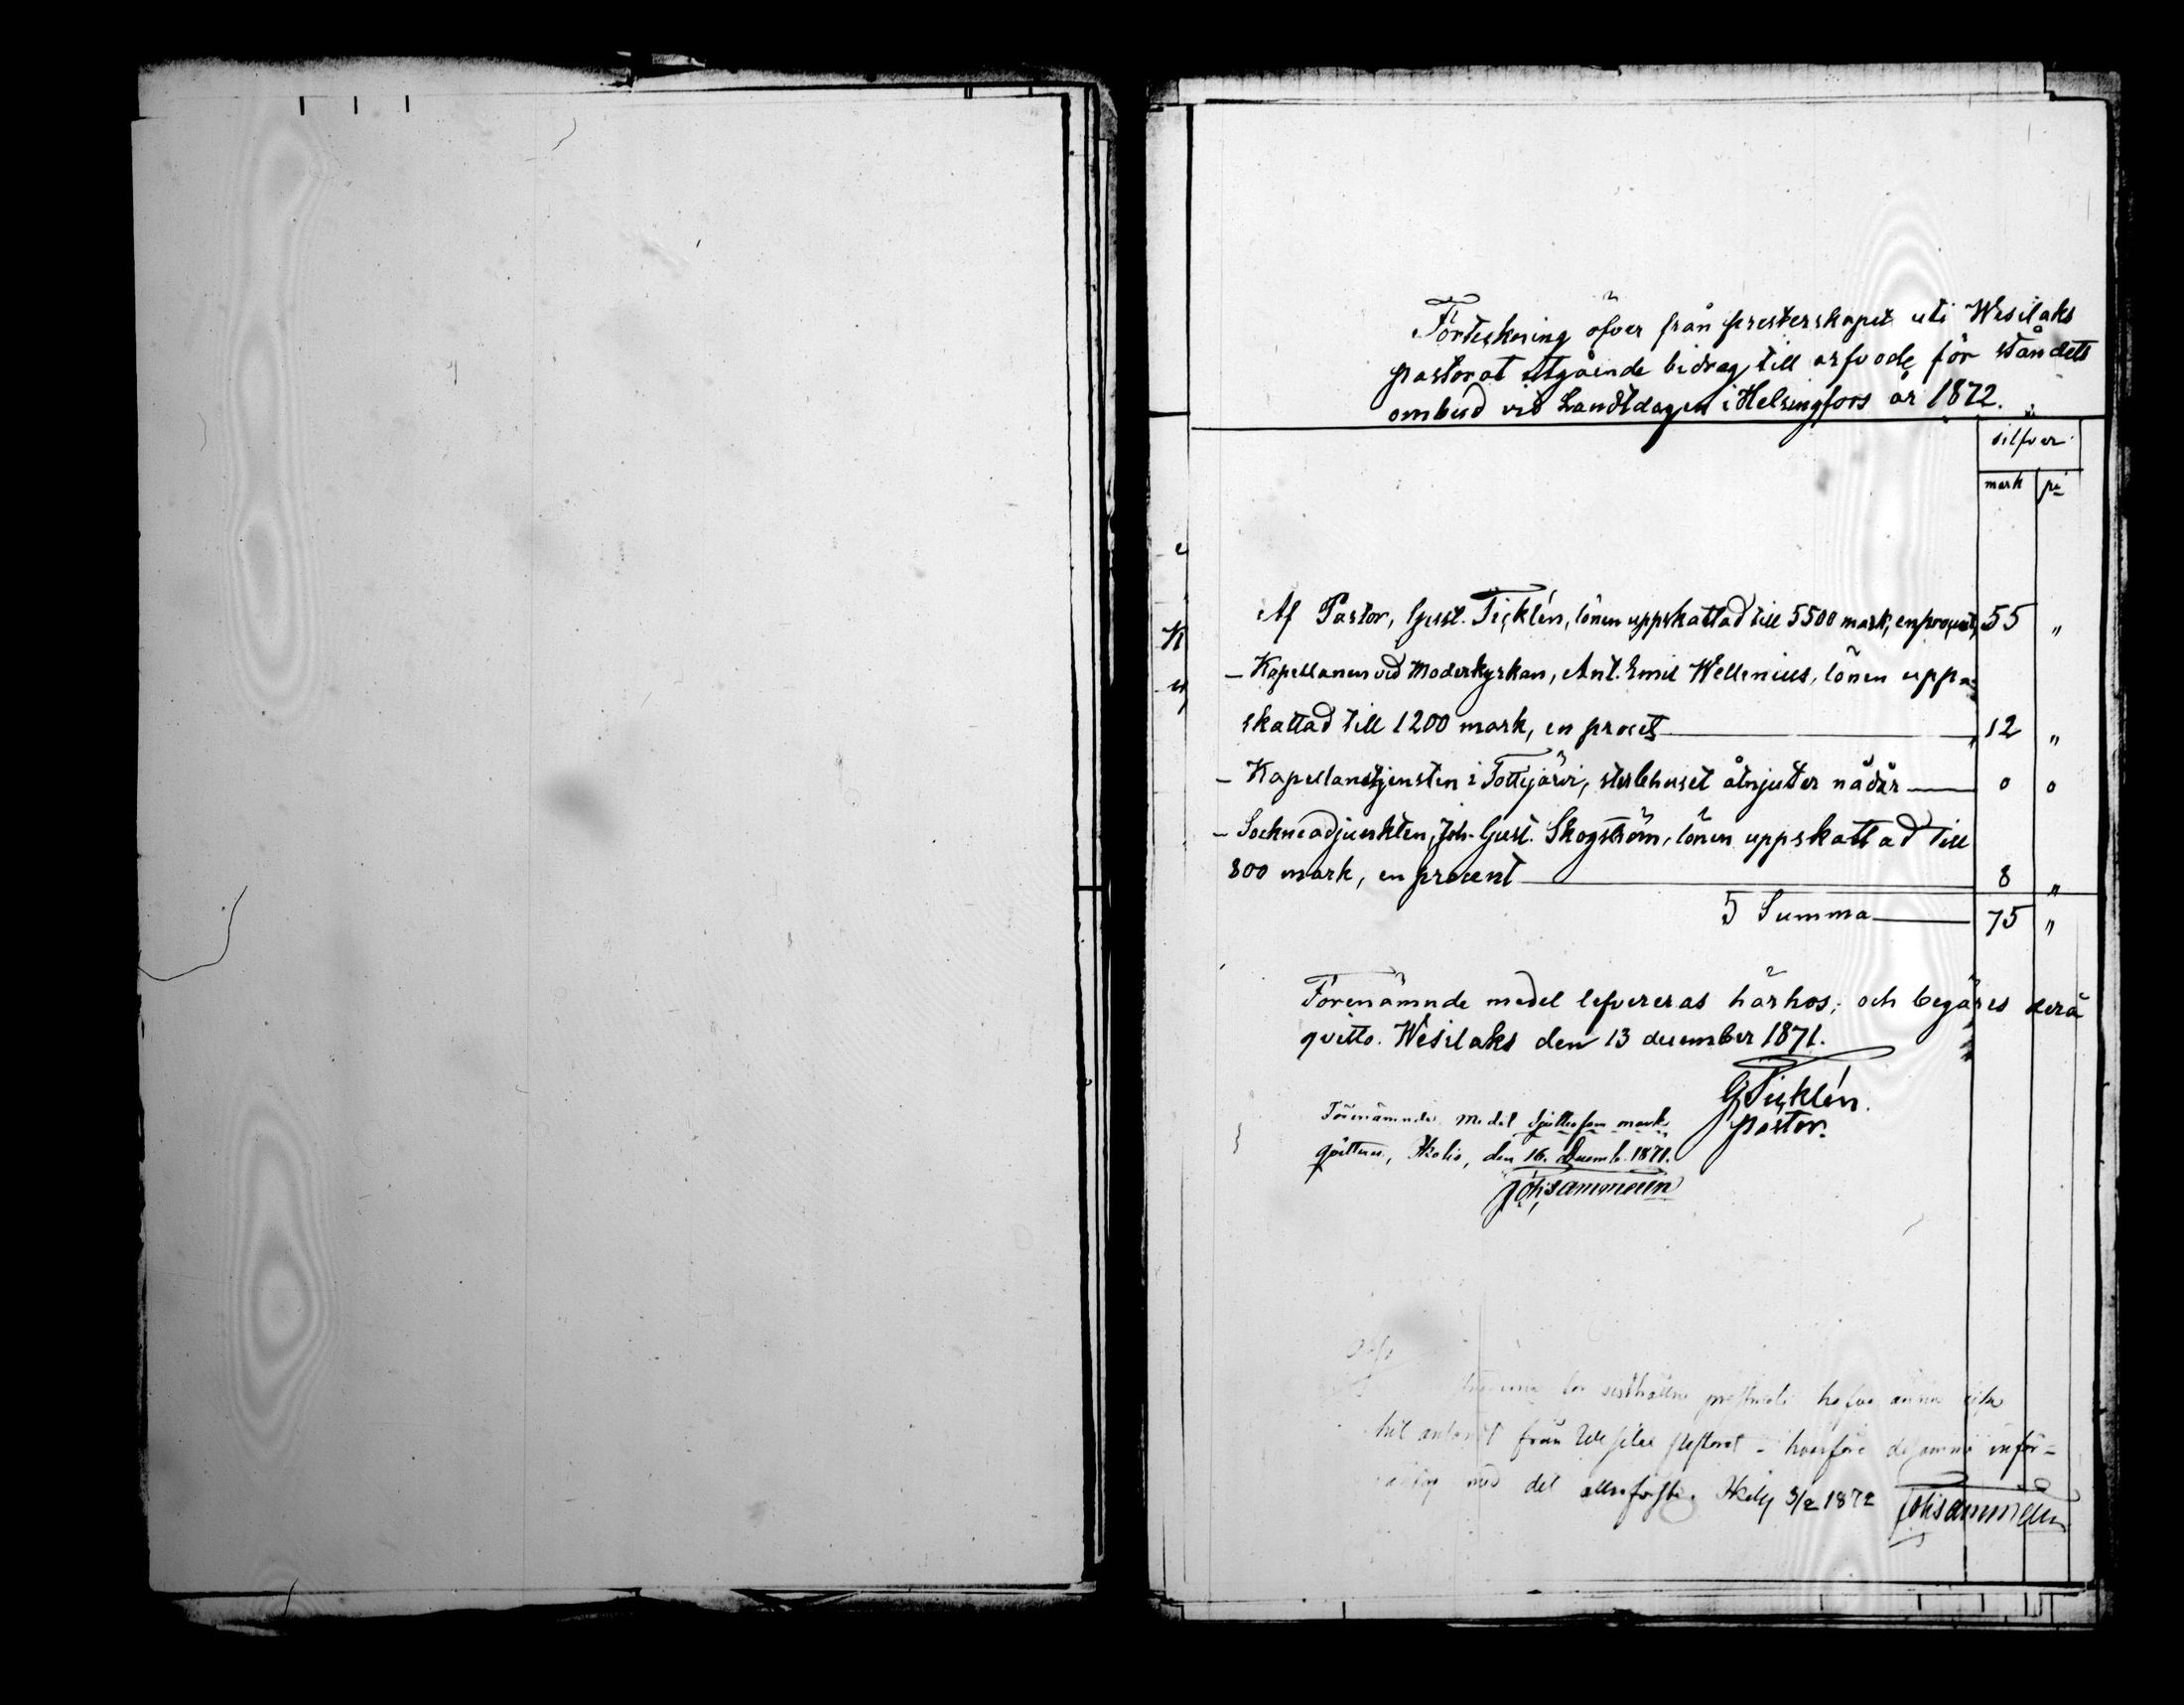 Förteckning öfver från presterskapet uti Wesilaks
pastorat utgående bidrag till arfvode för ståndets
ombud vid Landtdagen i Helsingfors år 1872.
silfver
mark pi
Af Pastor, Gust. Ticklén, lönen uppskattad till 5500 mark, en procent, 55 "
– Kapellanen vid Moderkyrkan, Ant. Emil Wellenius, lönen upp-
skattad till 1200 mark, en procet 12 "
– Kapellanstjensten i Tottijärvi, sterbhuset åtnjutter nådår 0 0
– Sockneadjunkten, Joh. Gust. Skogström, lönen uppskattad till
800 mark, en procent 8 "
5 Summa 75 "
Förenämnde medel lefvereras härhos; och begäres derå
qvitto. Wesilaks den 13 december 1871.
G Ticklén.
pastor.
Förenämnde medel Sjuttiofem mark
qvitteras, den 16. Decemb. 1871.
Joh Sammelin
hafva ännu icke
från pastorat – hvarföre desamma införr-
med det allraförsta. 3/2 1872 Joh Sammelin